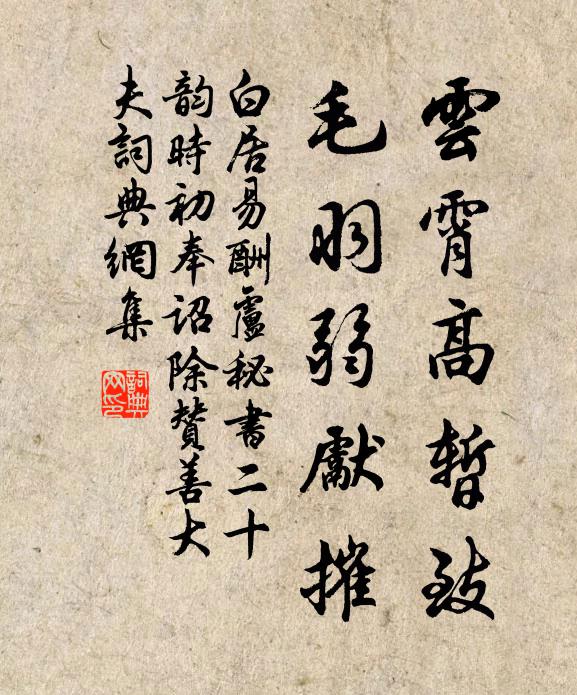 雲霄高暫致
毛羽弱獻摧
白居易酬盧秘書二十
韵時初奉詔除贊善大
夫詞典網集
詞典
网印